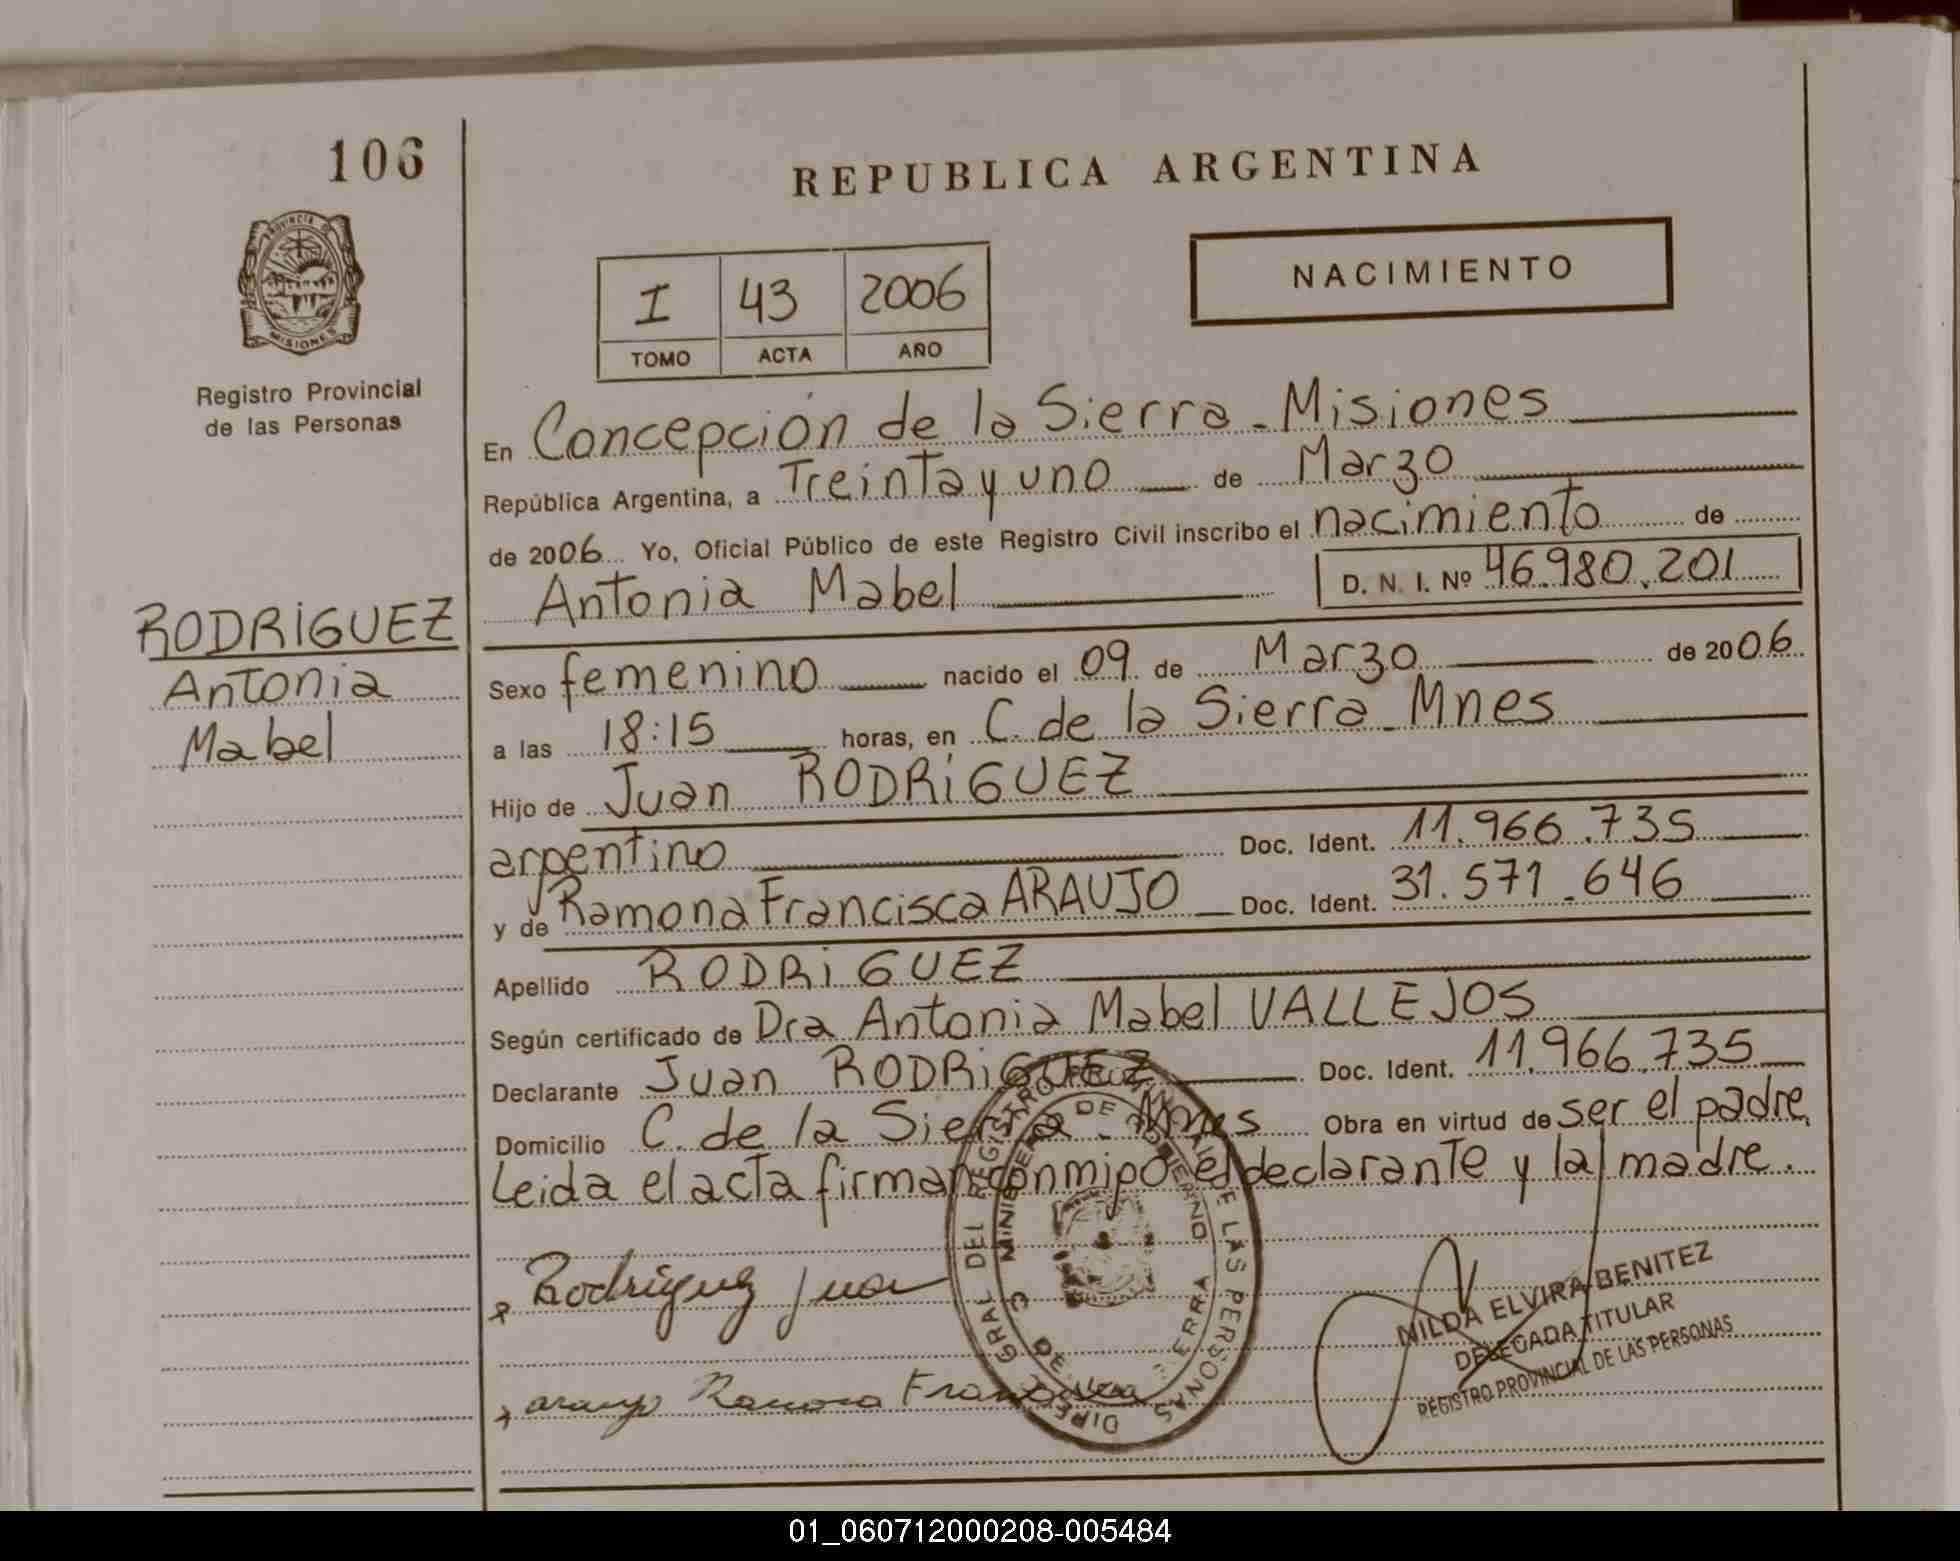 106
REPUBLICA ARGENTINA
PROVINCIA DE
MISIONES
Registro Provincial
de las Personas
I 43 2006
TOMO ACTA AÑO
NACIMIENTO
En Concepción de la Sierra - Misiones
República Argentina, a Treinta y uno de Marzo
de 2006 Yo, Oficial Público de este Registro Civil inscribo el nacimiento de
Antonia Mabel D. N. I. Nº 46.980.201
RODRIGUEZ
Antonia
Mabel
Sexo femenino nacido el 09 de Marzo de 2006
a las 18:15 horas, en C. de la Sierra - Mnes
Hijo de Juan RODRIGUEZ
argentino Doc. Ident. 11.966.735
y de Ramona Francisca ARAUJO Doc. Ident. 31.571.646
Apellido RODRIGUEZ
Según certificado de Dra Antonia Mabel VALLEJOS
Declarante Juan RODRIGUEZ Doc. Ident. 11.966.735
Domicilio C. de la Sierra - Mnes Obra en virtud de ser el padre,
Leida el acta firman conmigo el declarante y la madre.
Rodriguez Juan
araujo Ramona Francisca
NILDA ELVIRA BENITEZ
DELEGADA TITULAR
REGISTRO PROVINCIAL DE LAS PERSONAS
01_060712000208-005484